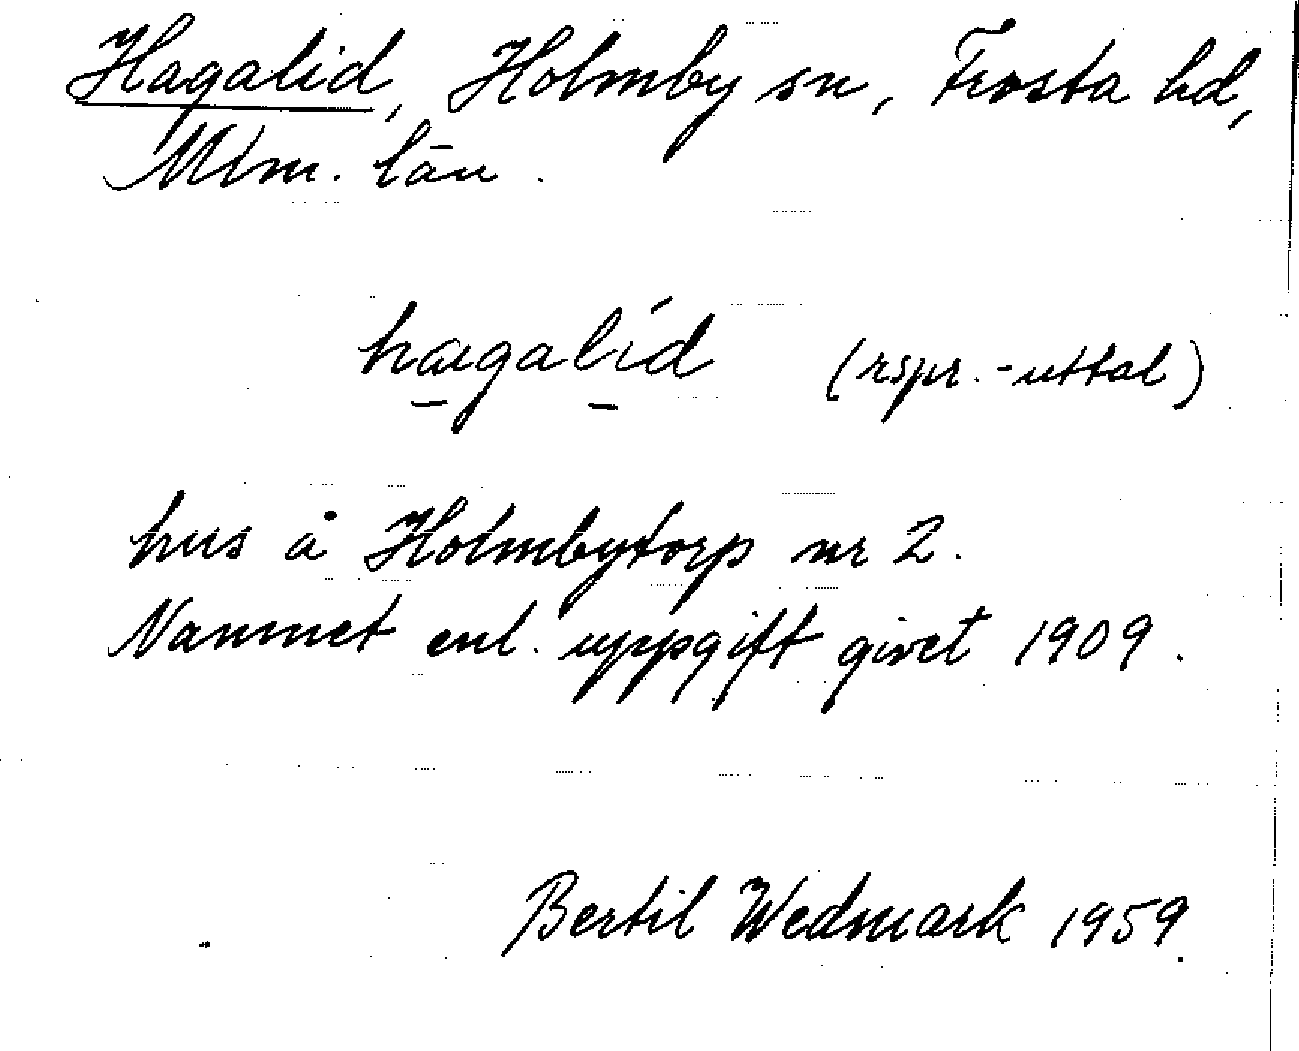 Hagalid, Holmby sn, Frosta hd,
Mlm. län.
hagalíd (rspr.-uttal)
hus å Holmbytorp nr 2.
Namnet enl. uppgift givet 1909.
Bertil Wedmark 1959.